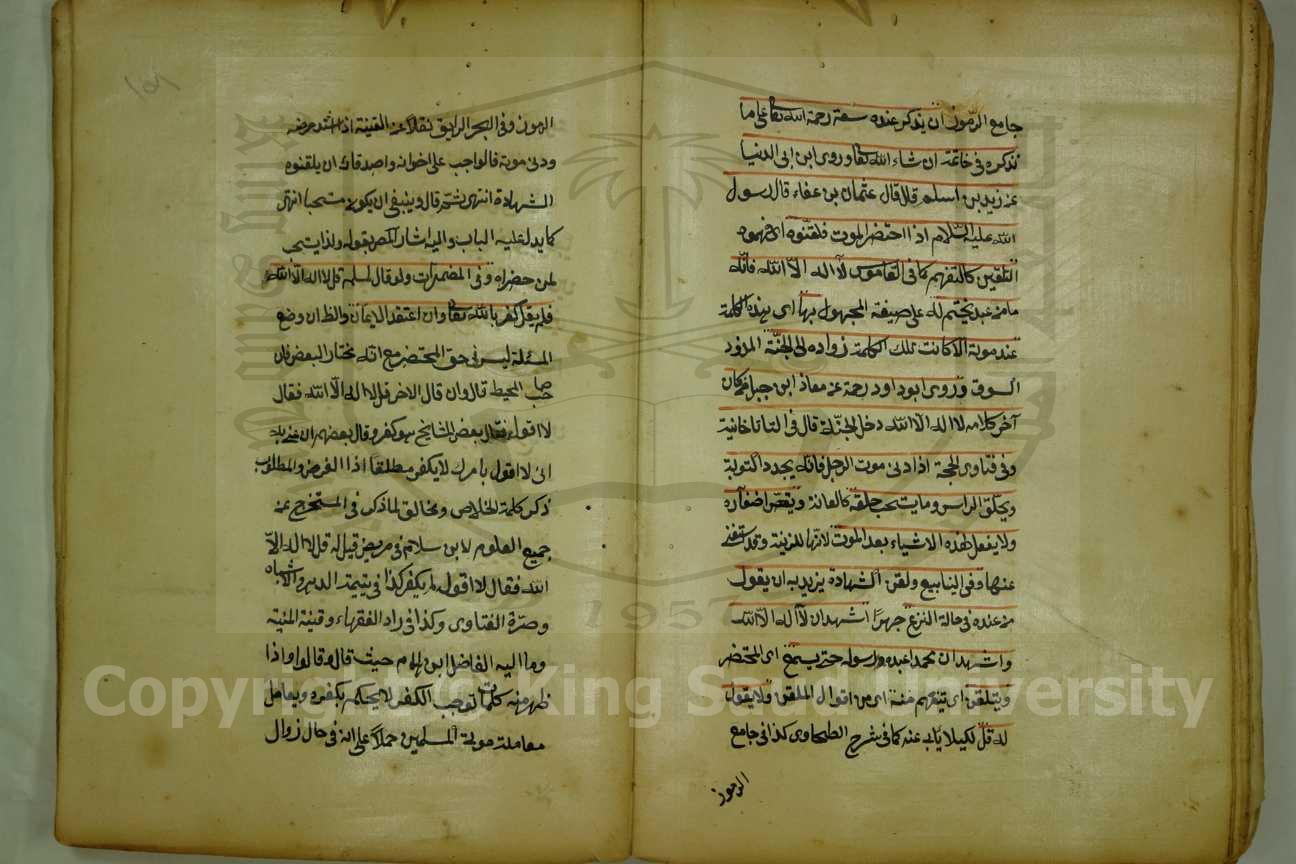 جامع الرموز ان يذكر عنده سعة رحمة الله تعالى على ما
نذكره في خاتمة ان شاء الله تعالى وروى ابن ابى الدنيا
عن زيد بن اسلم قال قال عثمان بن عفان قال رسول
الله عليه السلام اذا احتضر الموت فلقنوه اى فهموه
التلقين كالتفهيم كما فى القاموس لا اله الا الله فانه
ما من عبد يختم له على صيغة المجهول بها اى بهذه الكلمة
عند موته الا كانت تلك الكلمة زواده الى الجنة المزود
السوق وروى ابو داود رحمة عن معاذ ابن جبل من كان
آخر كلامه لا اله الا الله دخل الجنة قال فى التاتارخانية
وفى فتاوى الحجة اذا دنى موت الرجل فانه يجدد التوبة
ويحلق الراس وما يستحب حلقه كالعانة ويقص اضفاره
ولا يفعل هذه الاشياء بعد الموت لانها للزينة وقد استغنى
عنها وفى الينابيع ولقن الشهادة يريد به ان يقول
من عنده فى حالة النزع جهرا اشهد ان لا اله الا الله
واشهد ان محمدا عبده ورسوله حتى يسمع اى المحتضر
ويتلقن اى يتفهم منه اى من اقوال الملقن ولا يقول
له قل لكيلا يأبى عنه كما فى شرح الطحاوى كذا فى جامع
الرموز
١٥٦
الرموز وفى البحر الرايق نقلا عن القنية اذا اشتد مرضه
ودنى موته فالواجب على اخوانه واصدقائه ان يلقنوه
الشهادة انتهى ثم قال وينبغى ان يكون مستحبا انتهى
كما يدل عليه الباب واليه اشار المص بقوله ولذا يستحب
لمن حضراه وفى المضمرات ولو قال لمسلم قل لا اله الا الله
فلم يقل كفر بالله تعالى وان اعتقد الايمان والظ ان وضع
المسئلة ليس فى حق المحتضر مع انه مختار البعض قال
صاحب المحيط قال وان قال الاخر قل لا اله الا الله فقال
لا اقول فقال بعض المشايخ هو كفر وقال بعضهم ان عنى به
انى لا اقول بامرك لا يكفر مطلقا اذا الغرض والمطلوب
ذكر كلمة الخلاص ومخالف لما ذكر فى المستخرج عن
جميع العلوم لابن سلام فى مريض قيل له قل لا اله الا
الله فقال لا اقول لم يكفر كذا فى يتيمة الدهر والاشباه
وصرة الفتاوى وكذا فى زاد الفقهاء وقنية المنية
وما اليه الفاضل ابن الهمام حيث قال وقالوا واذا
ظهر منه كلمات توجب الكفر لا يحكم بكفره ويعامل
معاملة موتى المسلمين حملا على انه فى حال زوال
1957
Copyright © King Saud University